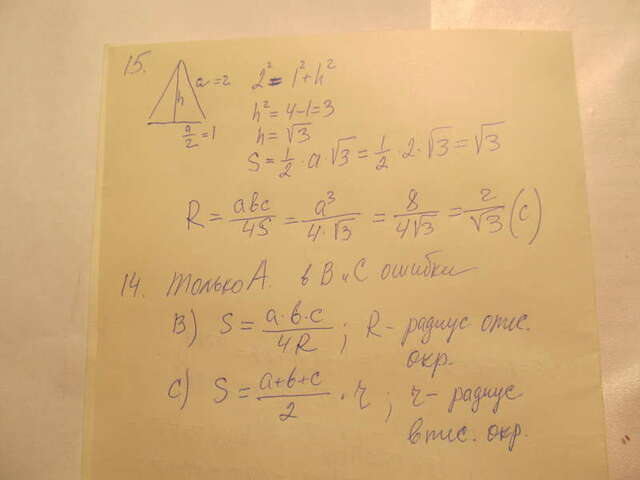 15.
a=2
h
a/2=1
2²=1²+h²
h²=4-1=3
h=√3
S=1/2·a·√3=1/2·2·√3=√3
R=abc/4S=a³/4·√3=8/4√3=2/√3 (C)
14. только А. в В и С ошибки
В) S=a·b·c/4R; R- радиус опис.
окр.
С) S=a+b+c/2·r; r- радиус
впис. окр.